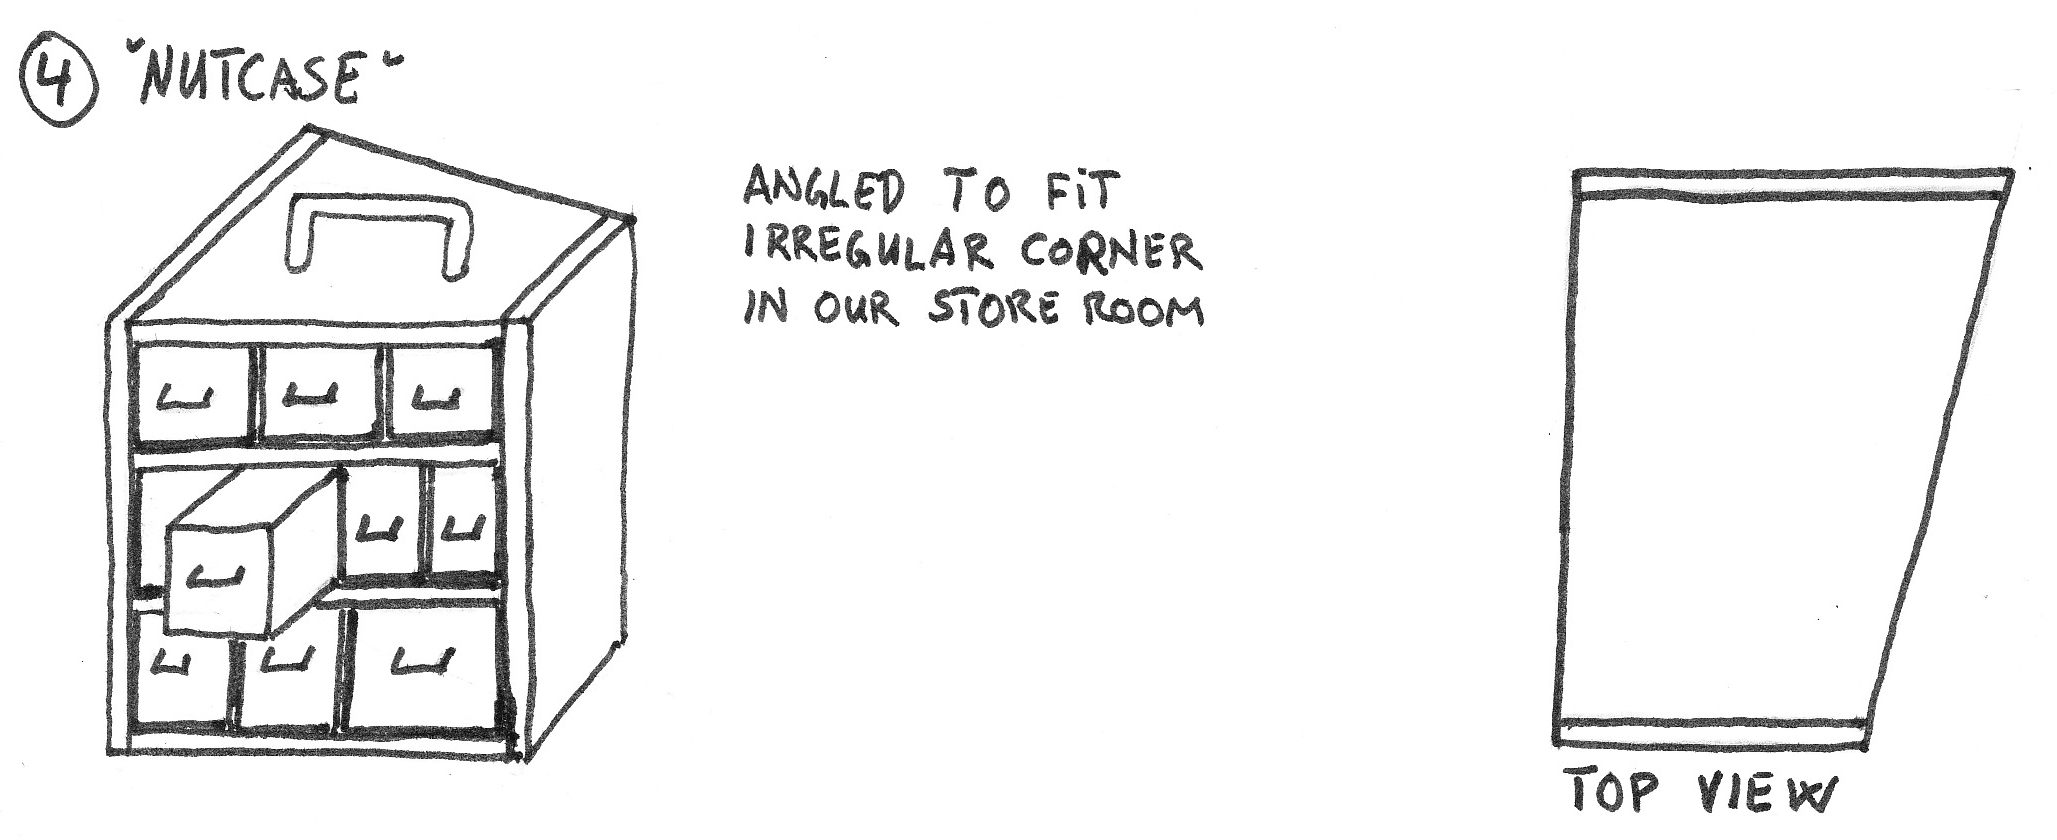 4 "NUTCASE"
ANGLED TO FIT
IRREGULAR CORNER
IN OUR STORE ROOM
TOP VIEW